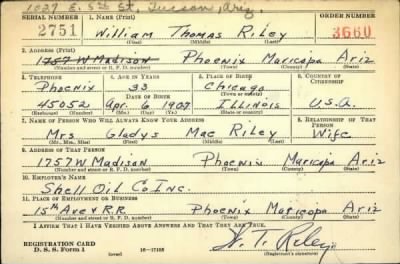 1027 E. 5th St, Tucson, Ariz.
SERIAL NUMBER 1. NAME (Print) ORDER NUMBER
2751 William Thomas Riley 3660
(First) (Middle) (Last)
2. ADDRESS (Print)
1757 W Madison Phoenix Maricopa Ariz
(Number and street or R. F. D. number) (Town) (County) (State)
3. TELEPHONE 4. AGE IN YEARS 5. PLACE OF BIRTH 6. COUNTRY OF CITIZENSHIP
Phoenix 33 Chicago
(Town or county)
45052 Apr. 6 1907 Illinois U.S.A.
7. NAME OF PERSON WHO WILL ALWAYS KNOW YOUR ADDRESS 8. RELATIONSHIP OF THAT PERSON
Mrs Gladys Mae Riley Wife
(Mr., Mrs., Miss) (First) (Middle) (Last)
9. ADDRESS OF THAT PERSON
1757 W Madison Phoenix Maricopa Ariz
(Number and street or R. F. D. number) (Town) (County) (State)
10. EMPLOYER'S NAME
Shell Oil Co Inc.
11. PLACE OF EMPLOYMENT OR BUSINESS
15th Ave & R.R. Phoenix Maricopa Ariz
(Number and street or R. F. D. number) (Town) (County) (State)
I AFFIRM THAT I HAVE VERIFIED ABOVE ANSWERS AND THAT THEY ARE TRUE.
REGISTRATION CARD W. T. Riley
D. S. S. Form 1 (over) 16-17105 (Registrant's signature)